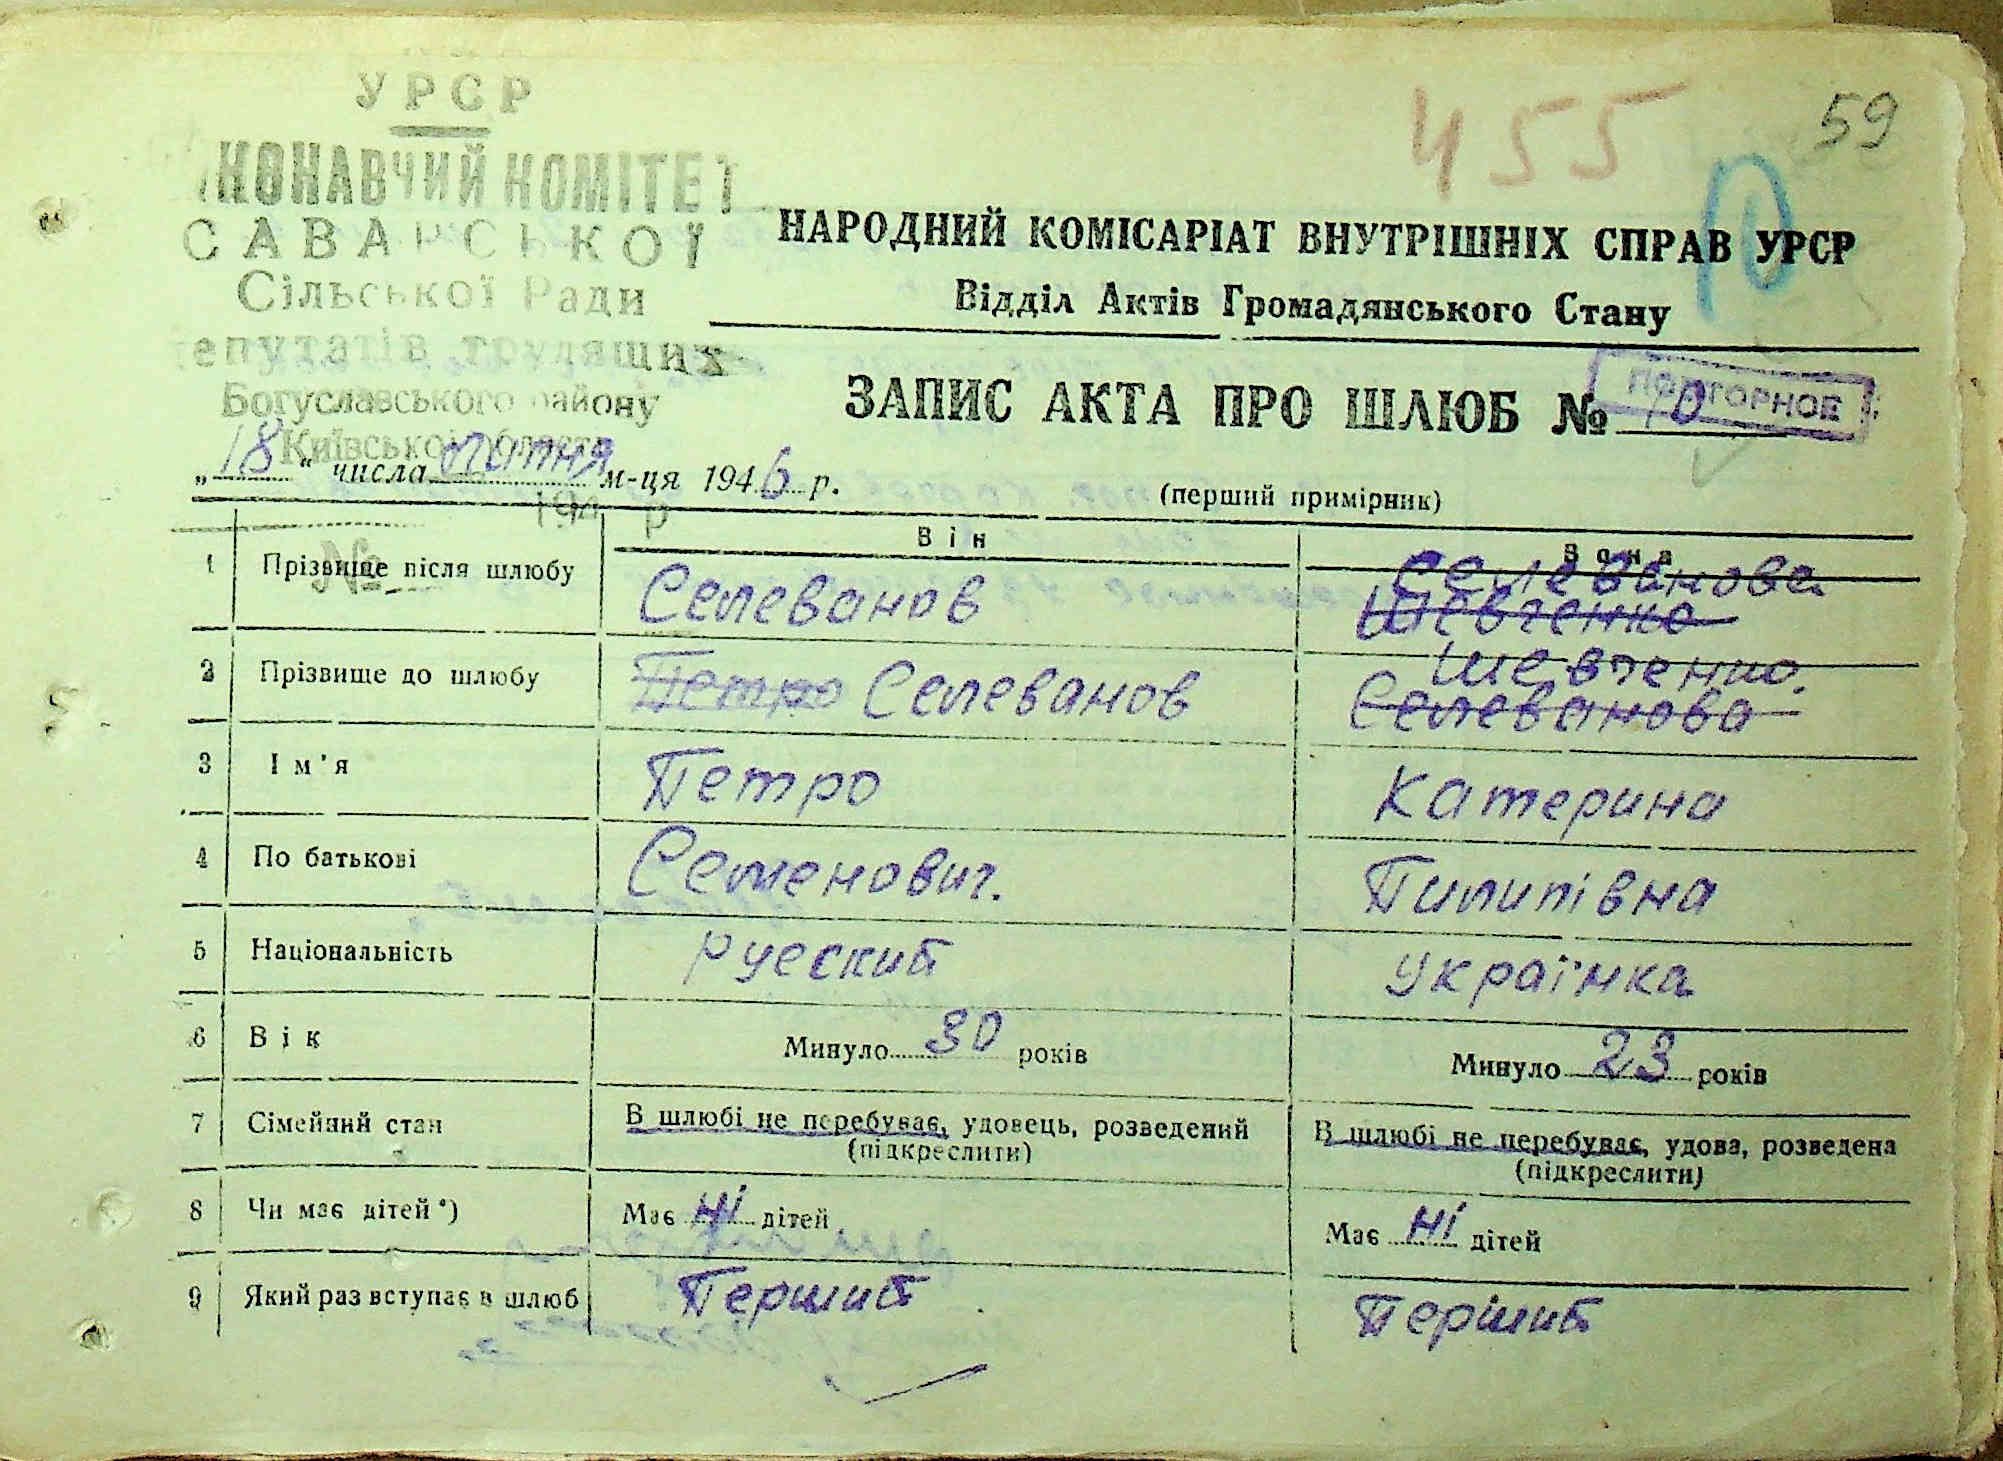 59
455
УРСР
КОНАВЧИЙ КОМІТЕТ
САВАРСЬКОЇ
Сільської Ради
епутатів трудящих
Богуславського району
Київської області
194 р
№
НАРОДНИЙ КОМІСАРІАТ ВНУТРІШНІХ СПРАВ УРСР
Відділ Актів Громадянського Стану
ЗАПИС АКТА ПРО ШЛЮБ № 10
ПОВТОРНОЕ
„18“ числа липня м-ця 1946 р.
(перший примірник)
Він Вона
1 Прізвище після шлюбу Селеванов Селеванова
Шевченко
2 Прізвище до шлюбу Петро Селеванов Шевченко.
Селеванова
3 Ім'я Петро Катерина
4 По батькові Семенович. Пилипівна
5 Національність русский українка
6 Вік Минуло 30 років Минуло 23 років
7 Сімейний стан В шлюбі не перебуває, удовець, розведений В шлюбі не перебуває, удова, розведена
(підкреслити) (підкреслити)
8 Чи має дітей*) Має ні дітей Має ні дітей
9 Який раз вступає в шлюб Перший Перший